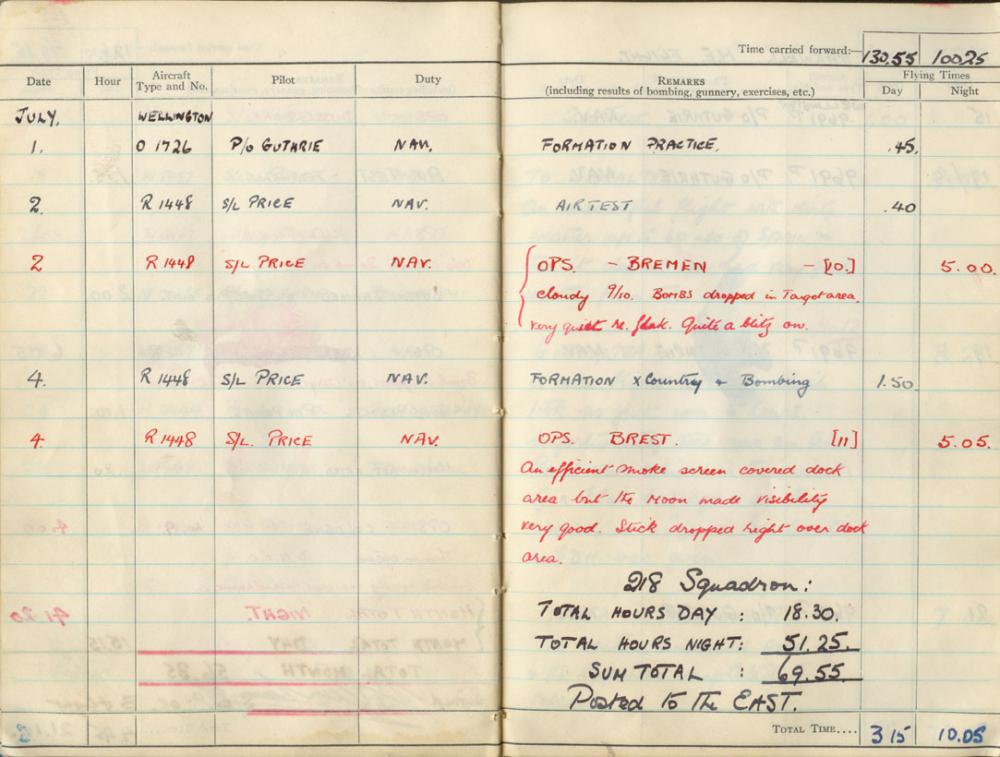 Time carried forward:— 130.55 100.25
Date Hour Aircraft Type and No. Pilot Duty REMARKS (including results of bombing, gunnery, exercises, etc.) Flying Times Day Night
JULY. WELLINGTON
1. O 1726 P/o GUTHRIE NAV. FORMATION PRACTICE. .45.
2. R 1448 S/L PRICE NAV. AIRTEST .40
2 R 1448 S/L PRICE NAV. OPS. - BREMEN - [10.] 5.00.
cloudy 9/10. Bombs dropped in Target area.
very quiet re. flak. Quite a blitz on.
4. R 1448 S/L PRICE NAV. FORMATION x Country + Bombing 1.50
4. R 1448 S/L. PRICE NAV. OPS. BREST. [11] 5.05.
An efficient smoke screen covered dock
area but the moon made visibility
very good. Stick dropped right over dock
area.
218 Squadron:
TOTAL HOURS DAY : 18.30.
TOTAL HOURS NIGHT: 51.25.
SUM TOTAL : 69.55.
Posted to the EAST.
TOTAL TIME.... 3 15 10.05